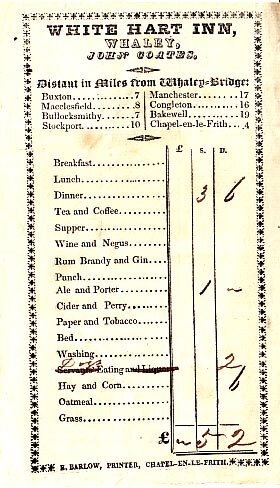 WHITE HART INN,
WHALEY,
JOHN COATES.
Distant in Miles from Whaley-Bridge:
Buxton..........7 Manchester........17
Macclesfield.....8 Congleton.........16
Bullocksmithy....7 Bakewell..........19
Stockport.......10 Chapel-en-le-Frith..4
£ S. D.
Breakfast
Lunch
Dinner 3 6
Tea and Coffee
Supper
Wine and Negus
Rum Brandy and Gin
Punch
Ale and Porter 1 –
Cider and Perry
Paper and Tobacco
Bed
Washing
Servants Eating and Liquor 2
Hay and Corn 6
Oatmeal
Grass
£ – 5 2
R. BARLOW, PRINTER, CHAPEL-EN-LE-FRITH.